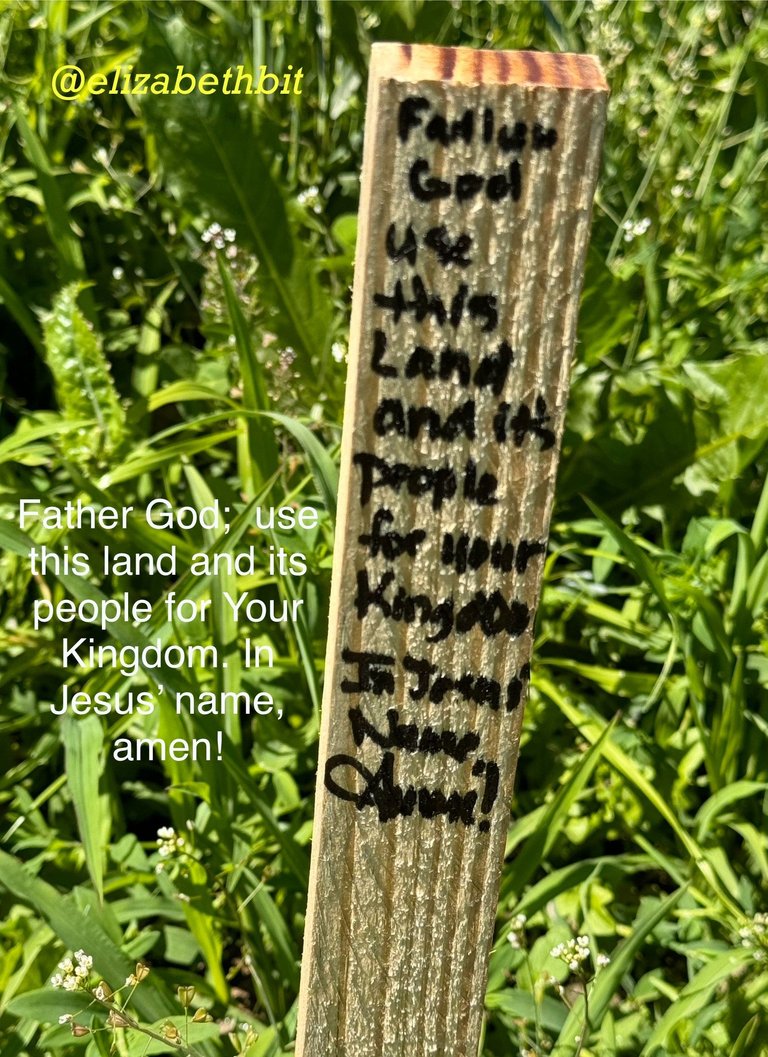 @elizabethbit
Father
God
use
this
Land
and it's
people
for your
Kingdom
In Jesus'
Name,
Amen!
Father God;  use
this land and its
people for Your
Kingdom. In
Jesus’ name,
amen!